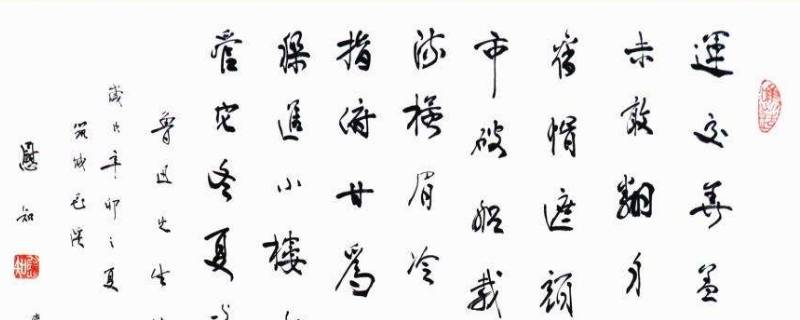 運交華蓋
未敢翻身
舊帽遮顏
市破船載
流橫眉冷
指俯甘為
躲進小樓
管它冬夏
魯迅先生
歲次辛卯之夏
筑城花溪
恩知